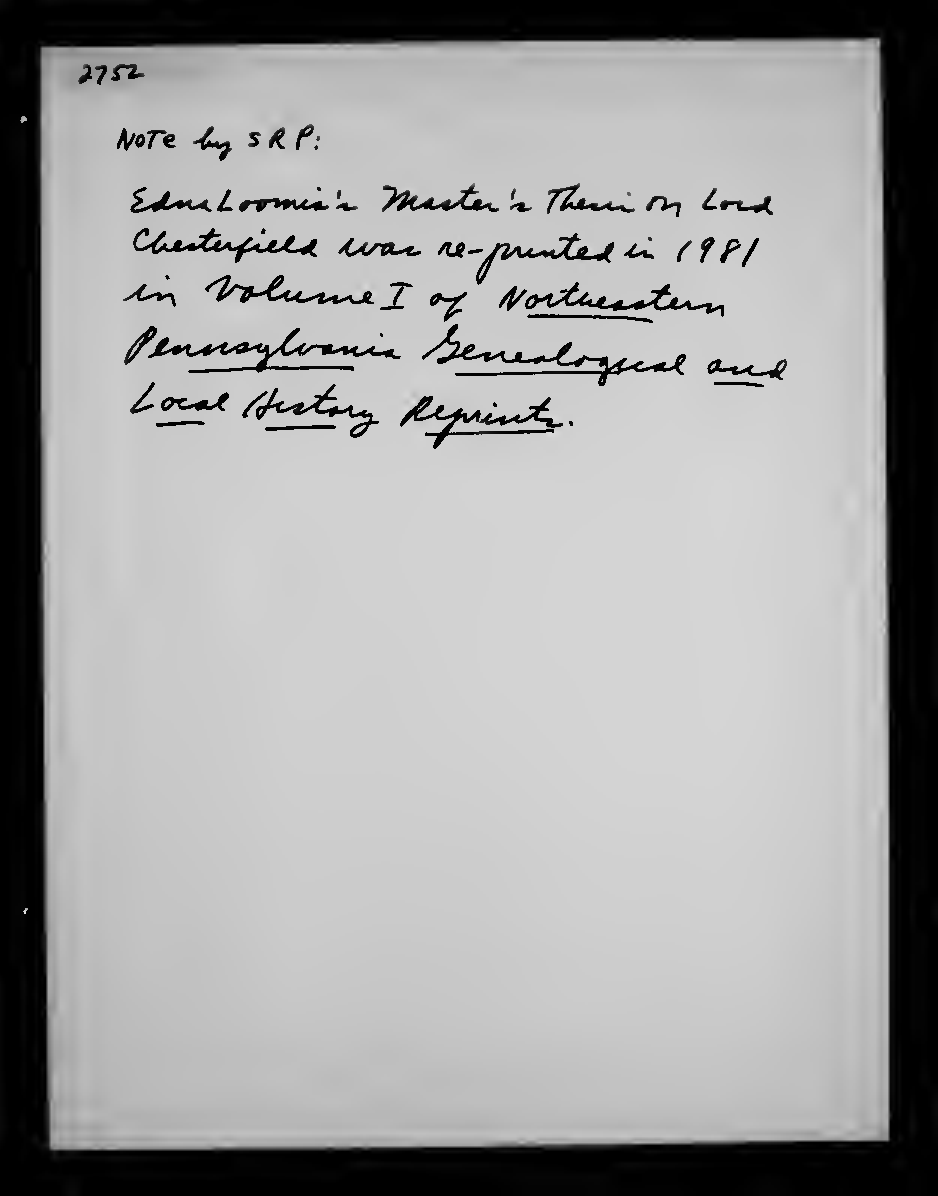 2752
Note by SRP:
Edna Loomis's Master's Thesis on Lord
Chesterfield was re-printed in 1981
in Volume I of Northeastern
Pennsylvania Genealogical and
Local History Reprints.